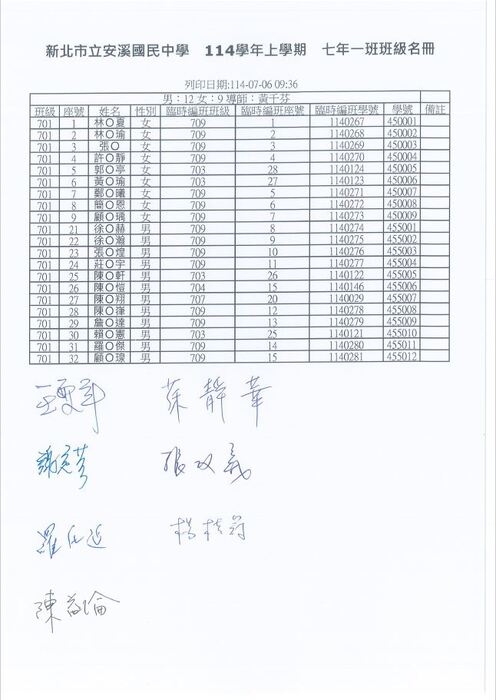 新北市立安溪國民中學 114學年上學期 七年一班班級名冊
列印日期:114-07-06 09:36
男：12 女：9 導師：黃千芬
班級 座號 姓名 性別 臨時編班班級 臨時編班座號 臨時編班學號 學號 備註
701 1 林〇夏 女 709 1 1140267 450001
701 2 林〇瑜 女 709 2 1140268 450002
701 3 張〇 女 709 3 1140269 450003
701 4 許〇靜 女 709 4 1140270 450004
701 5 郭〇葶 女 703 28 1140124 450005
701 6 黃〇瑜 女 703 27 1140123 450006
701 7 鄭〇曦 女 709 5 1140271 450007
701 8 簡〇恩 女 709 6 1140272 450008
701 9 顧〇瑀 女 709 7 1140273 450009
701 21 徐〇赫 男 709 8 1140274 455001
701 22 徐〇瀚 男 709 9 1140275 455002
701 23 張〇煌 男 709 10 1140276 455003
701 24 莊〇宇 男 709 11 1140277 455004
701 25 陳〇軒 男 703 26 1140122 455005
701 26 陳〇愷 男 704 15 1140146 455006
701 27 陳〇翔 男 707 20 1140029 455007
701 28 陳〇 男 709 12 1140278 455008
701 29 詹〇達 男 709 13 1140279 455009
701 30 賴〇憲 男 703 25 1140121 455010
701 31 羅〇傑 男 709 14 1140280 455011
701 32 顧〇 男 709 15 1140281 455012
葉靜華
張双義
楊
羅
陳